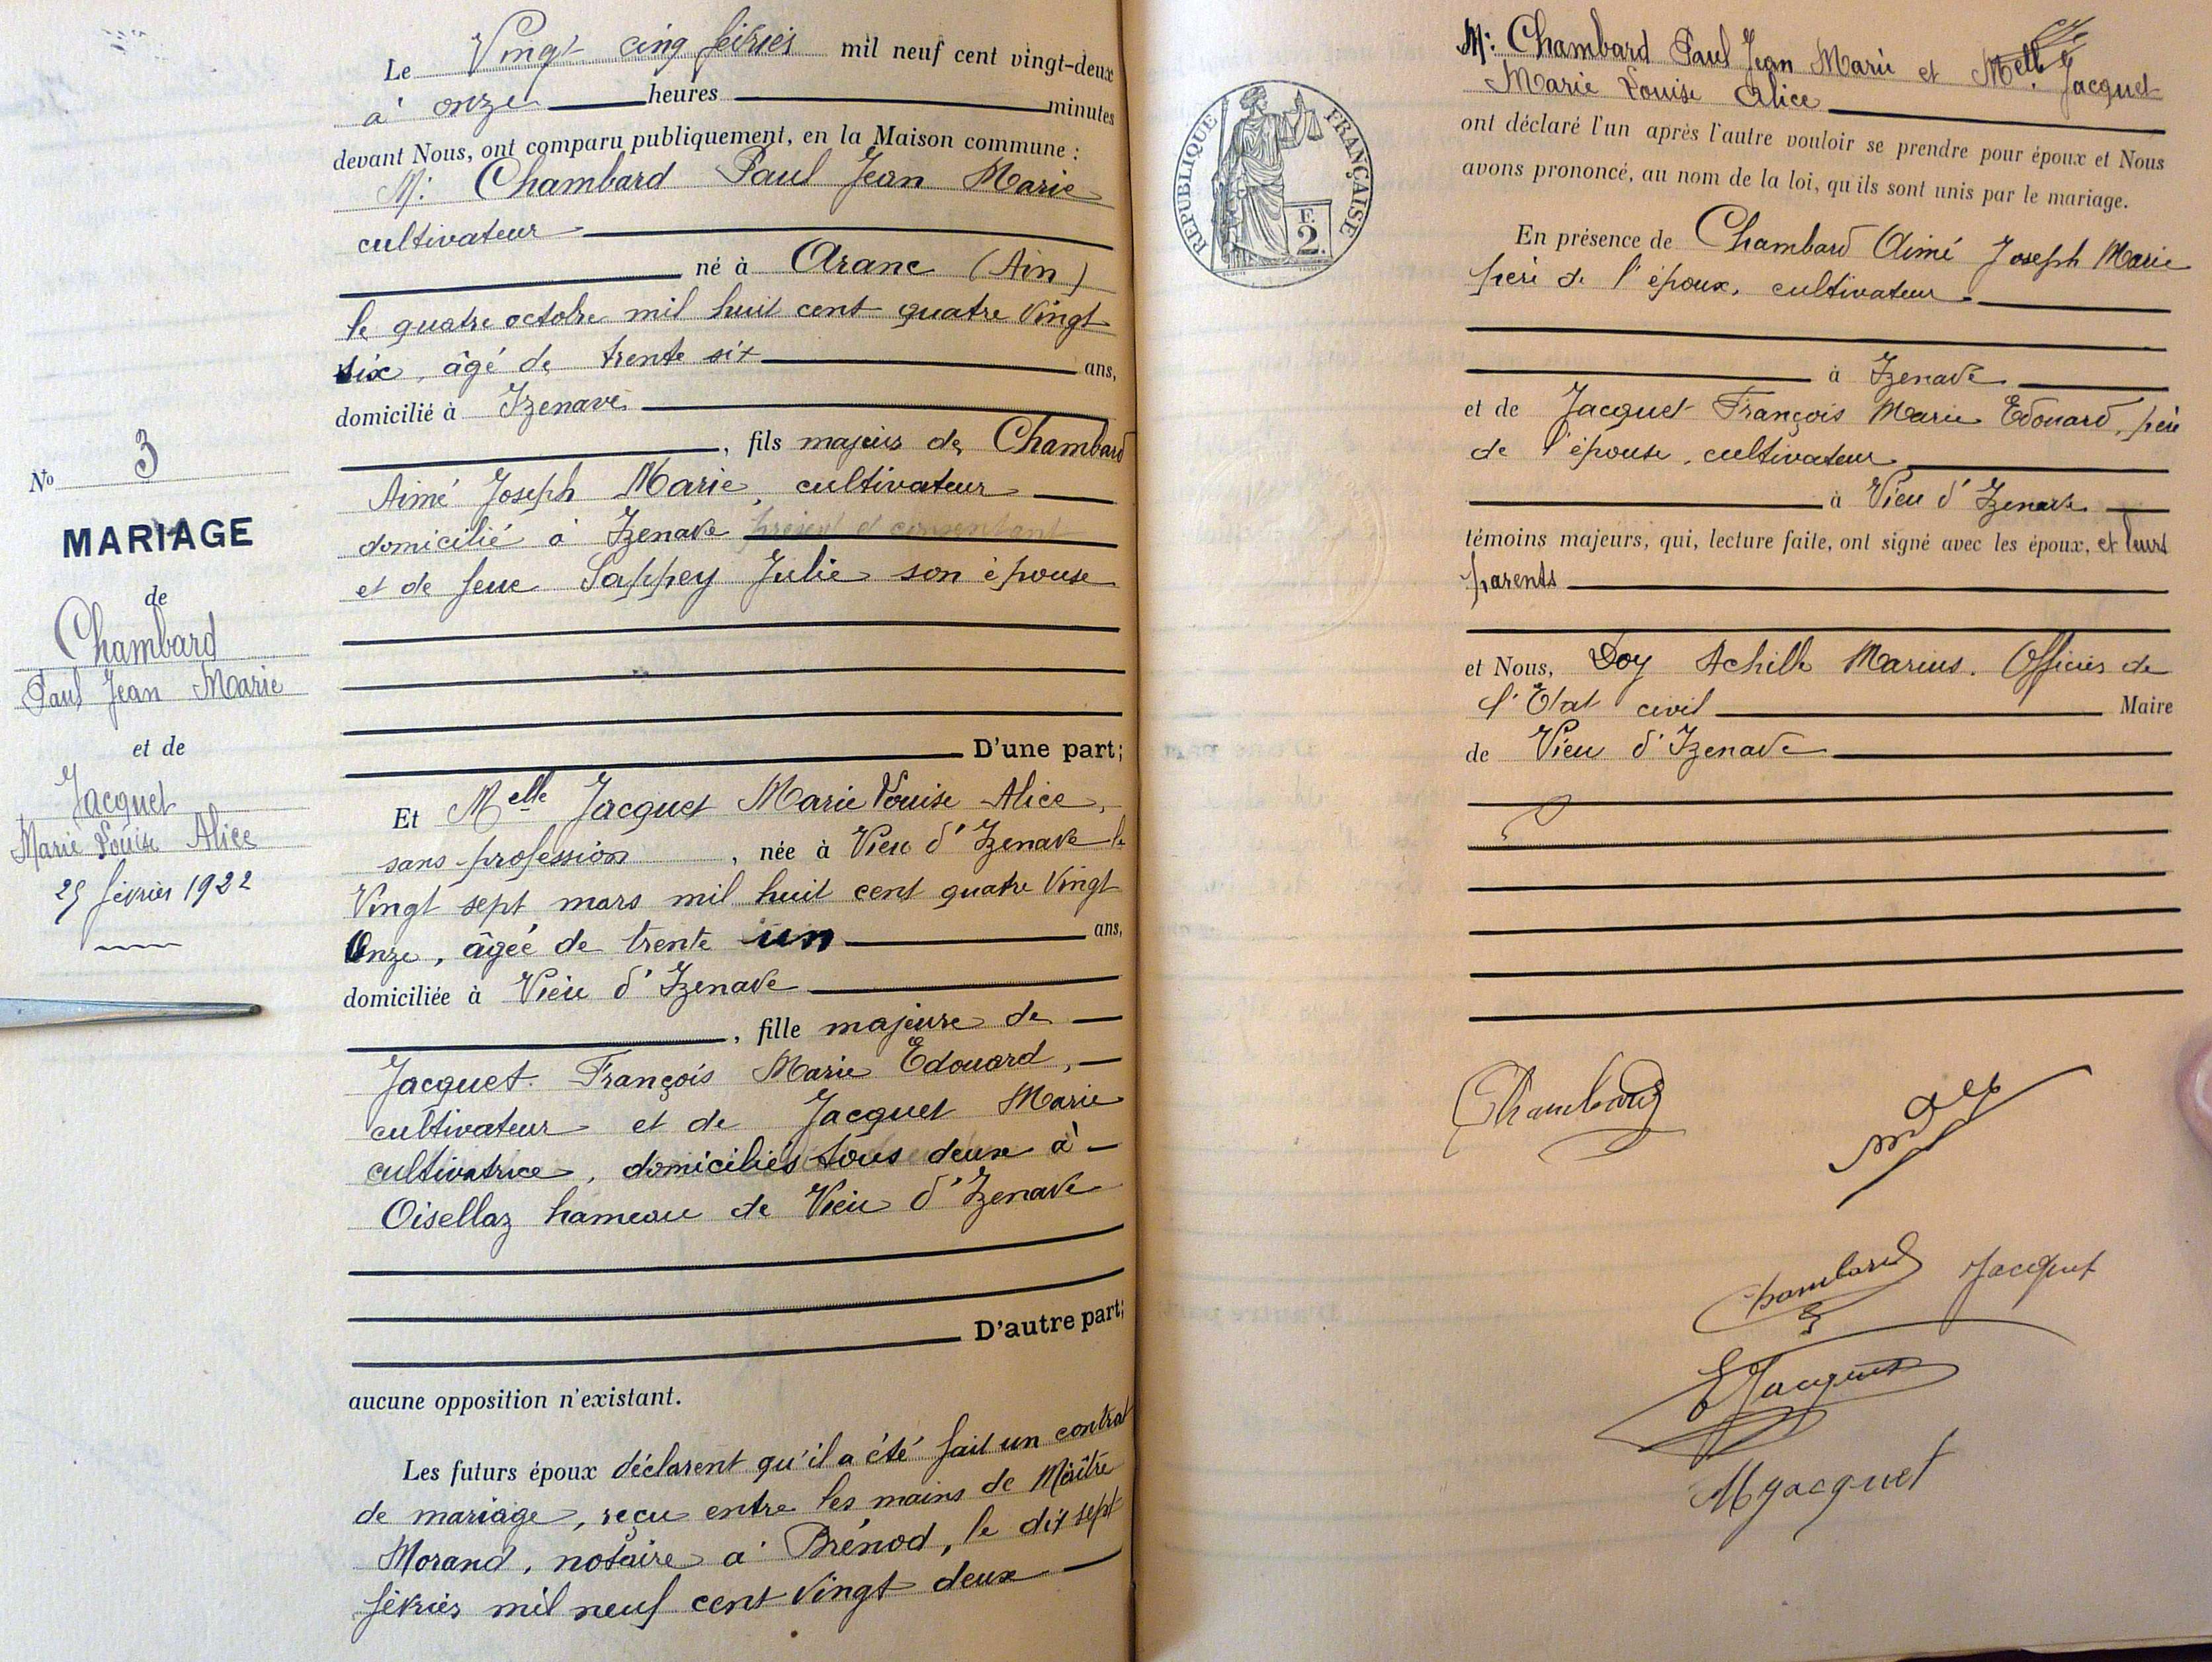 No 3
MARIAGE
de
Chambard
Paul Jean Marie
et de
Jacquet
Marie Louise Alice
25 février 1922
Le Vingt cinq février mil neuf cent vingt-deux
à onze heures minutes
devant Nous, ont comparu publiquement, en la Maison commune :
M. Chambard Paul Jean Marie
cultivateur
né à Aranc (Ain)
le quatre octobre mil huit cent quatre vingt
six, âgé de trente six ans,
domicilié à Izenave
, fils majeur de Chambard
Aimé Joseph Marie, cultivateur
domicilié à Izenave présent et consentant
et de feue Sappey Julie son épouse
D'une part;
Et Melle Jacquet Marie Louise Alice,
sans profession, née à Vieu d'Izenave le
Vingt sept mars mil huit cent quatre Vingt
Onze, âgée de trente un ans,
domiciliée à Vieu d'Izenave
, fille majeure de
Jacquet François Marie Edouard,
cultivateur et de Jacquet Marie
cultivatrice, domiciliés tous deux à
Oisellaz hameau de Vieu d'Izenave
D'autre part;
aucune opposition n'existant.
Les futurs époux déclarent qu'il a été fait un contrat
de mariage, reçu entre les mains de Maître
Morand, notaire à Brénod, le dix sept
février mil neuf cent vingt deux
RÉPUBLIQUE FRANÇAISE
F.
2.
M. Chambard Paul Jean Marie et Melle Jacquet
Marie Louise Alice
ont déclaré l'un après l'autre vouloir se prendre pour époux et Nous
avons prononcé, au nom de la loi, qu'ils sont unis par le mariage.
En présence de Chambard Aimé Joseph Marie
père de l'époux, cultivateur
à Izenave
et de Jacquet François Marie Edouard, père
de l'épouse, cultivateur
à Vieu d'Izenave
témoins majeurs, qui, lecture faite, ont signé avec les époux, et leurs
parents
et Nous, Doy Achille Marius. Officier de
l'Etat civil Maire
de Vieu d'Izenave
Chambard
Chambard Jacquet
E Jacquet
M Jacquet